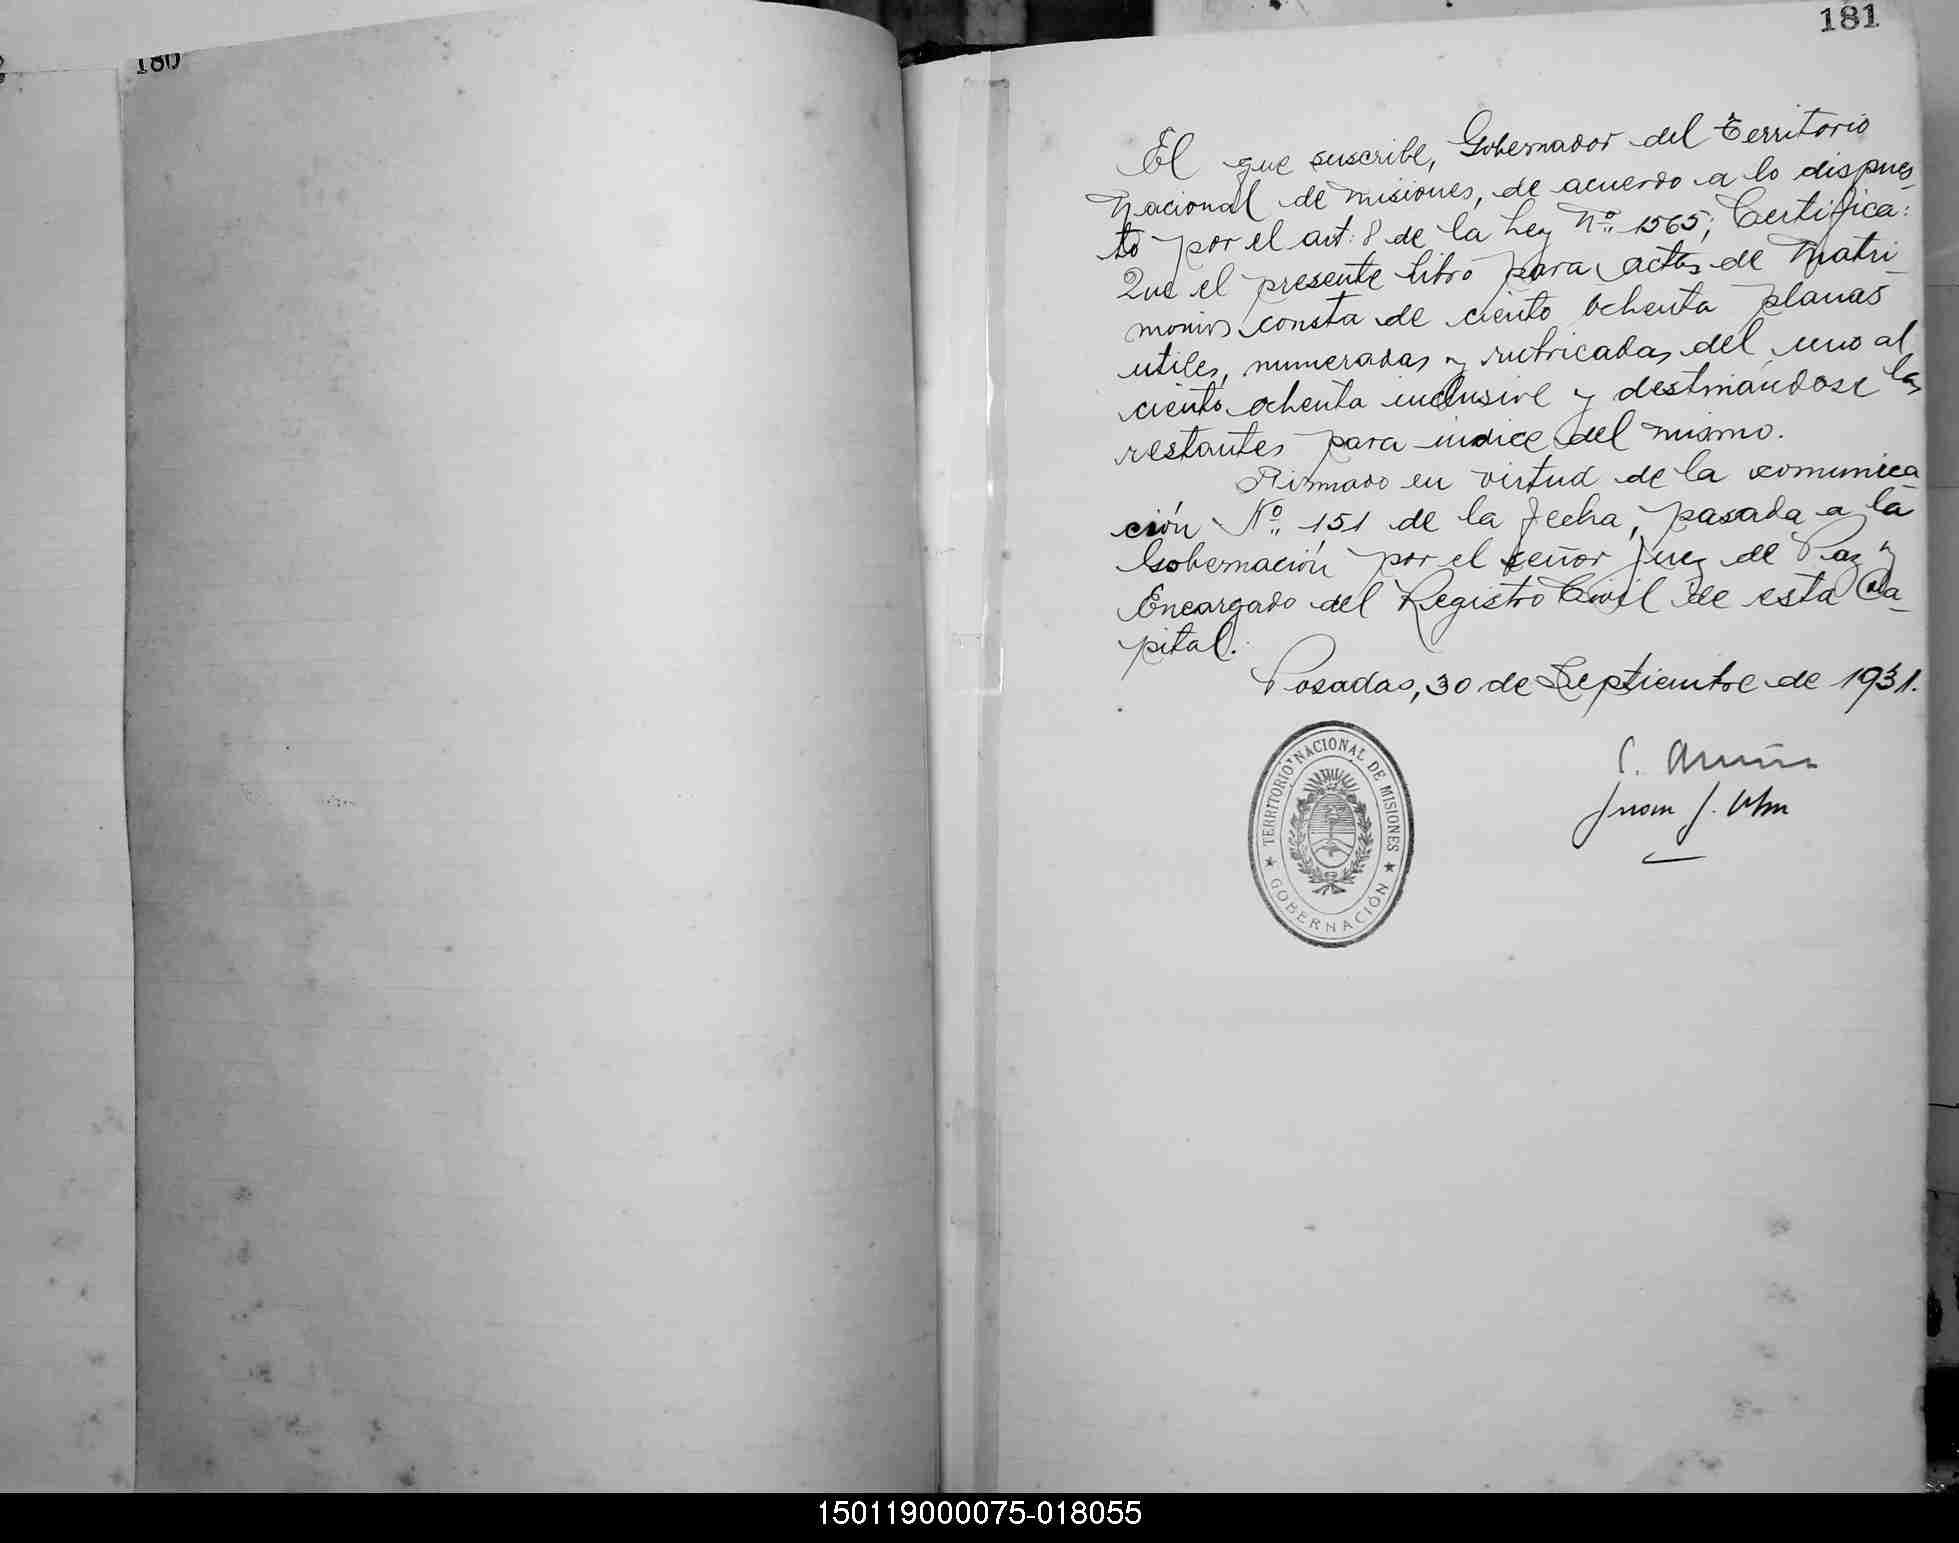 180
181
El que suscribe, Gobernador del Territorio
Nacional de Misiones, de acuerdo a lo dispues-
to por el art: 8 de la Ley Nº 1565; Certifica:
Que el presente libro para actas de Matri-
monios consta de ciento ochenta planas
utiles, numeradas y rubricadas del uno al
ciento ochenta inclusive y destinándose las
restantes para indice del mismo.
Firmado en virtud de la comunica-
ción Nº 151 de la fecha, pasada a la
Gobernación por el señor Juez de Paz y
Encargado del Registro Civil de esta Ca-
pital.
Posadas, 30 de Septiembre de 1931.
Juan J.
TERRITORIO NACIONAL DE MISIONES
★ GOBERNACIÓN ★
150119000075-018055